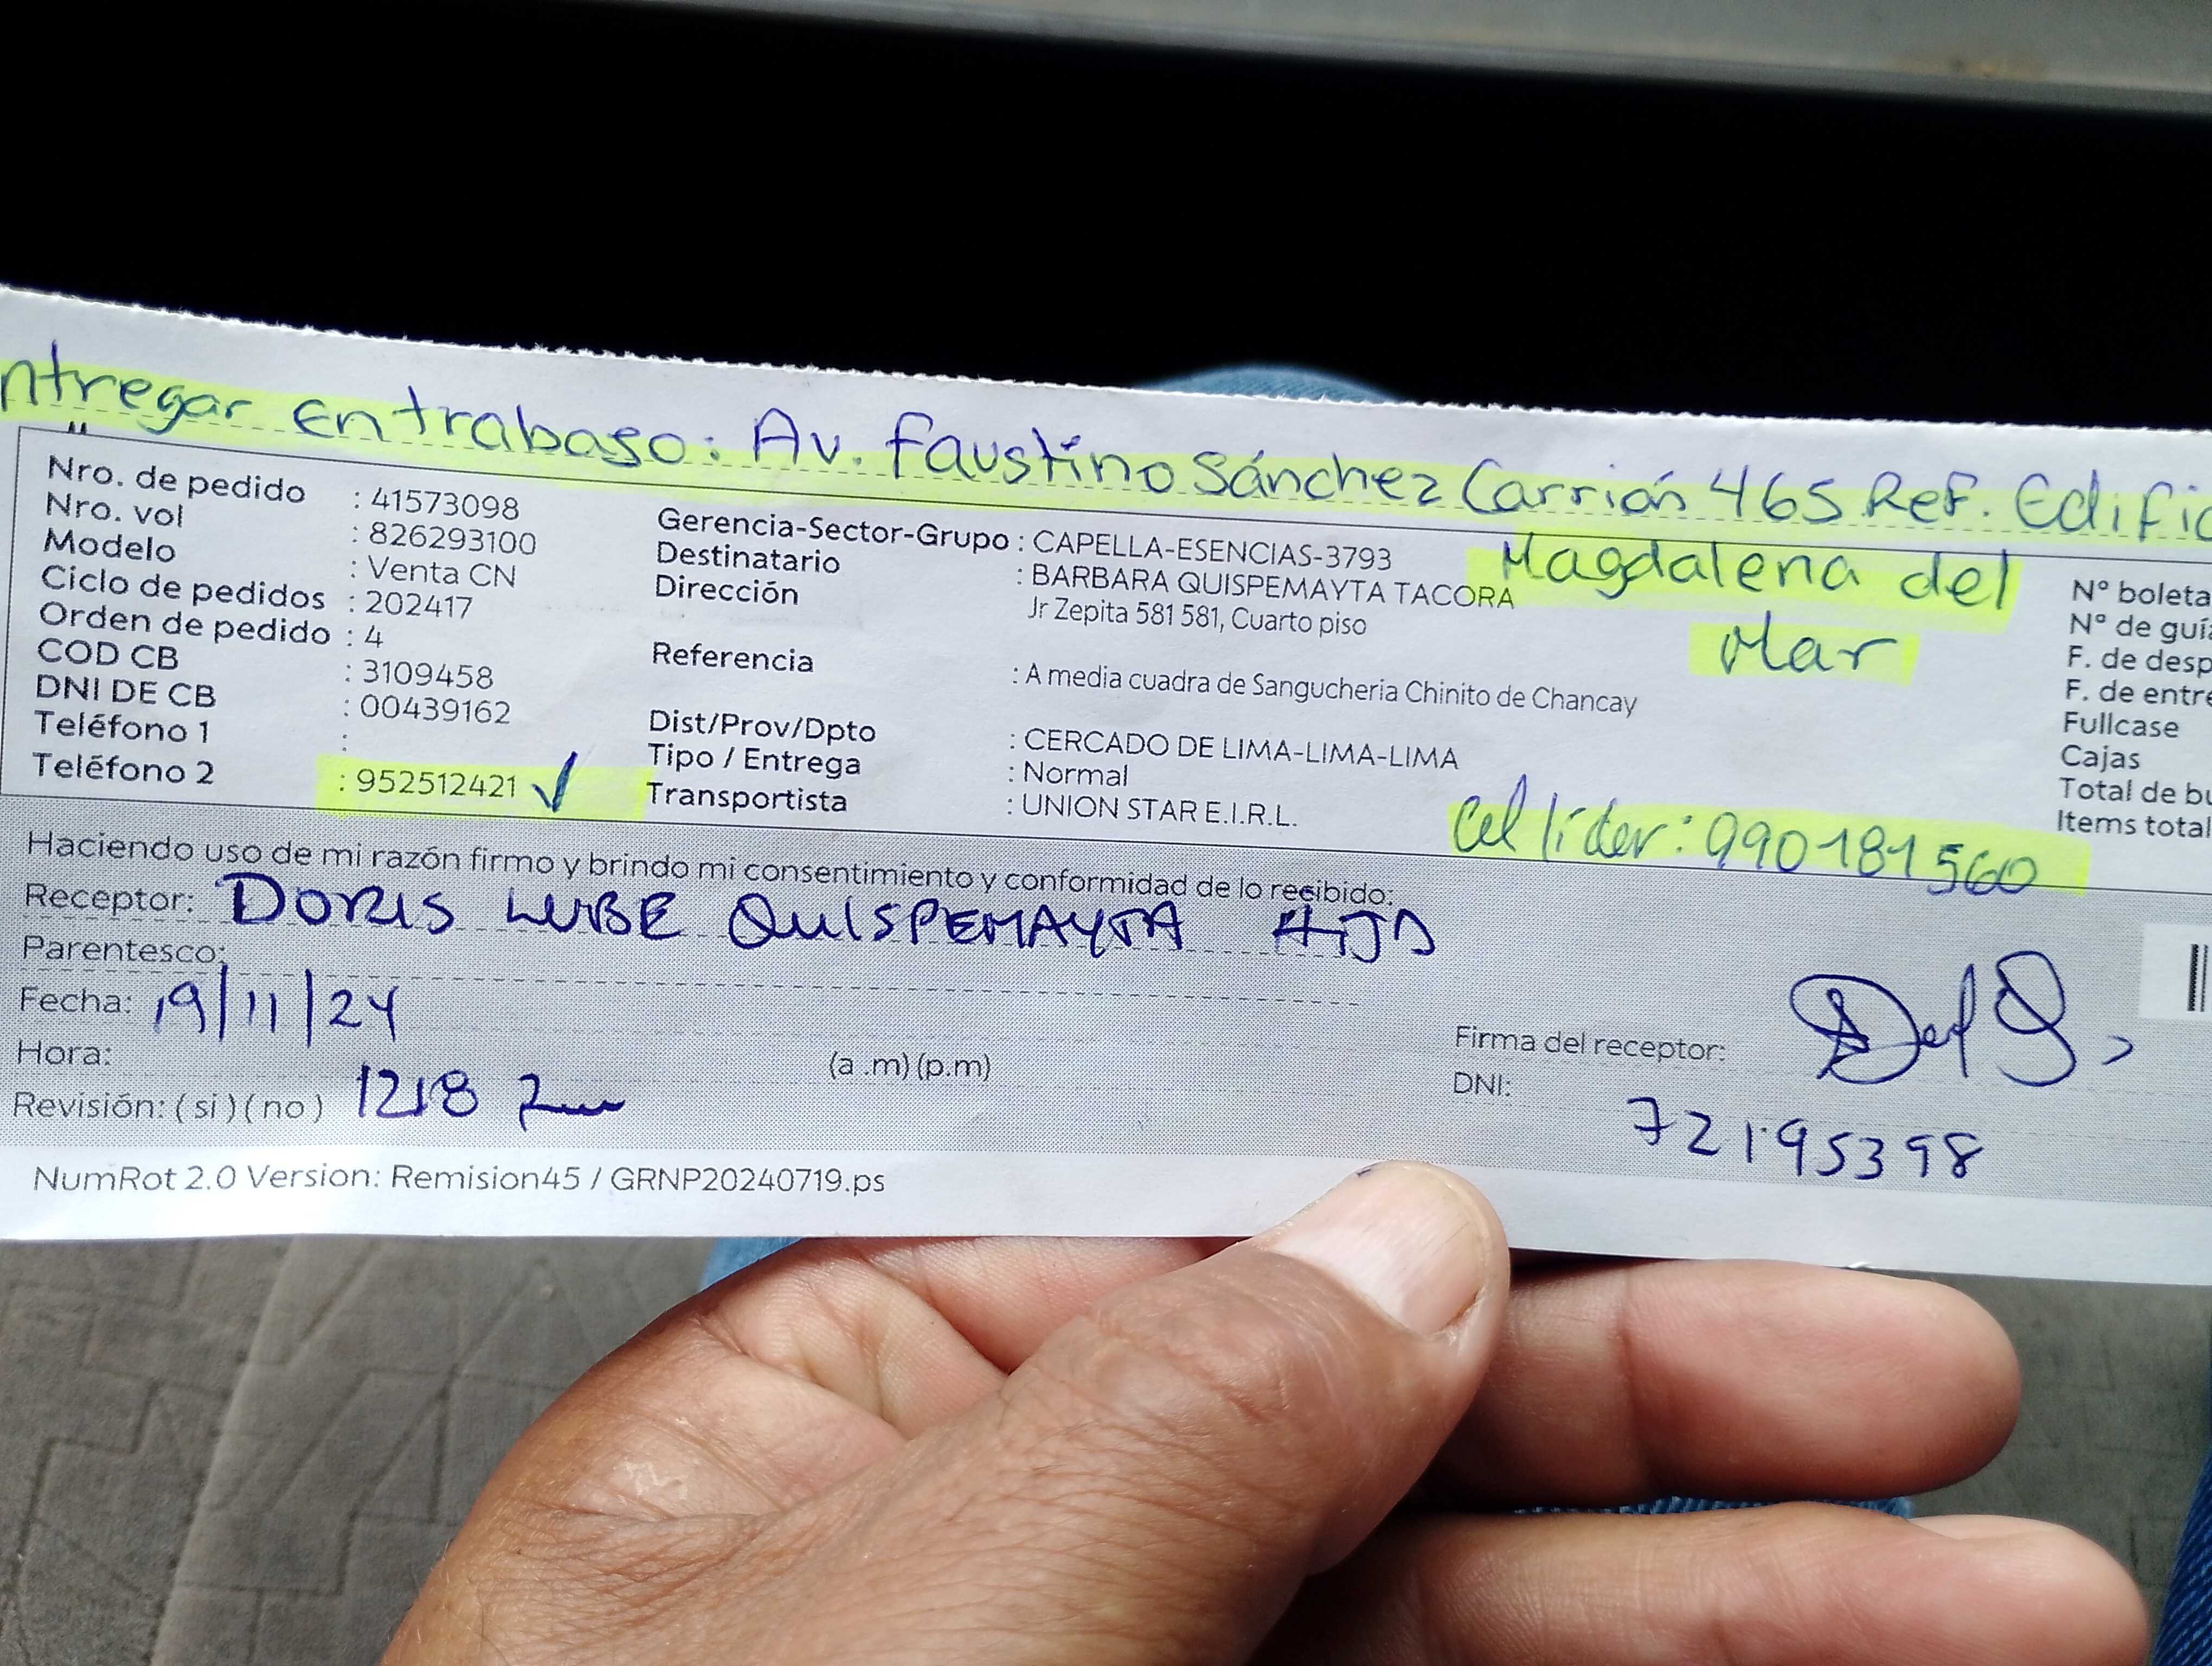 ntregar en trabajo: Av. Faustino Sánchez Carrión 465 Ref. Edific
Magdalena del
Mar
Nro. de pedido : 41573098
Nro. vol : 826293100
Modelo : Venta CN
Ciclo de pedidos : 202417
Orden de pedido : 4
COD CB : 3109458
DNI DE CB : 00439162
Teléfono 1 :
Teléfono 2 : 952512421 ✓
Gerencia-Sector-Grupo : CAPELLA-ESENCIAS-3793
Destinatario : BARBARA QUISPEMAYTA TACORA
Dirección Jr Zepita 581 581, Cuarto piso
Referencia : A media cuadra de Sangucheria Chinito de Chancay
Dist/Prov/Dpto : CERCADO DE LIMA-LIMA-LIMA
Tipo / Entrega : Normal
Transportista : UNION STAR E.I.R.L.
Cel líder: 990181560
N° boleta
N° de guía
F. de desp
F. de entre
Fullcase
Cajas
Total de bu
Items total
Haciendo uso de mi razón firmo y brindo mi consentimiento y conformidad de lo recibido:
Receptor: DORIS LUBE QUISPEMAYTA HIJA
Parentesco:
Fecha: 19/11/24
Hora: (a .m) (p.m)
Revisión: ( si ) ( no ) 1218
Firma del receptor:
DNI: 72195398
NumRot 2.0 Version: Remision45 / GRNP20240719.ps